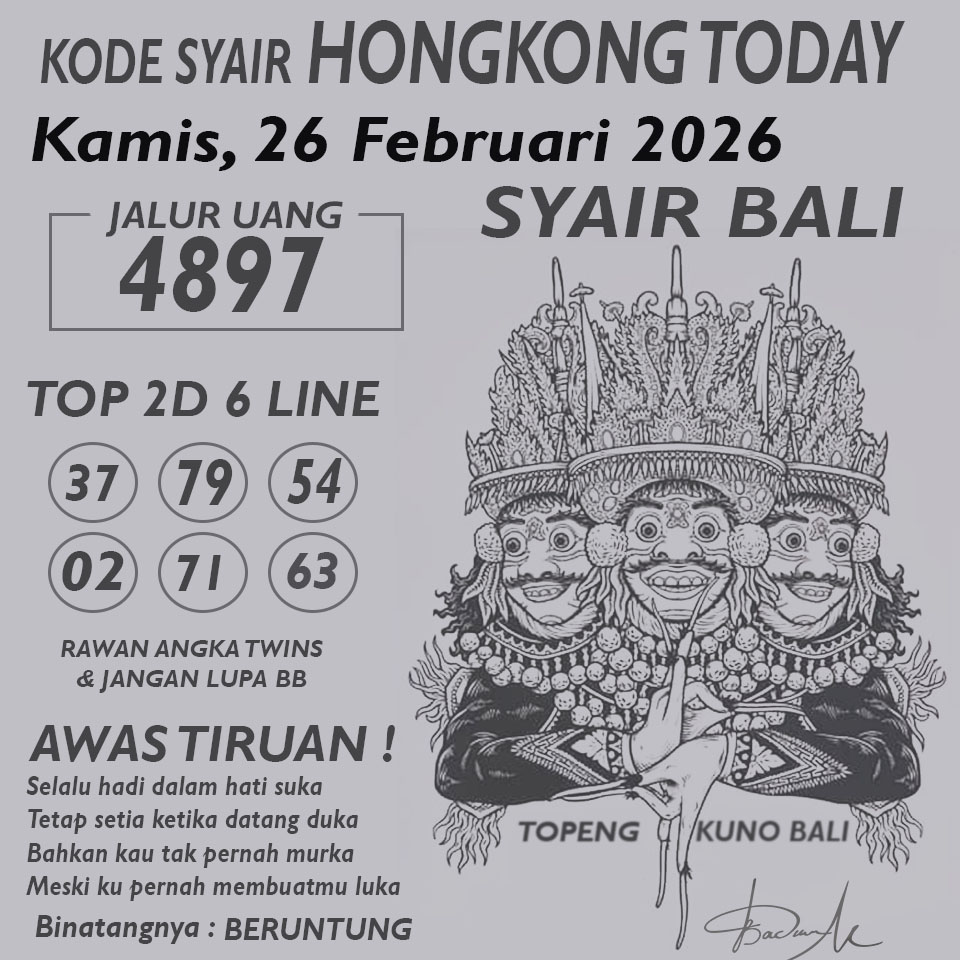 KODE SYAIR HONGKONG TODAY
Kamis, 26 Februari 2026
SYAIR BALI
JALUR UANG
4897
TOP 2D 6 LINE
37 79 54
02 71 63
RAWAN ANGKA TWINS
& JANGAN LUPA BB
AWAS TIRUAN !
Selalu hadi dalam hati suka
Tetap setia ketika datang duka
Bahkan kau tak pernah murka
Meski ku pernah membuatmu luka
Binatangnya : BERUNTUNG
TOPENG KUNO BALI